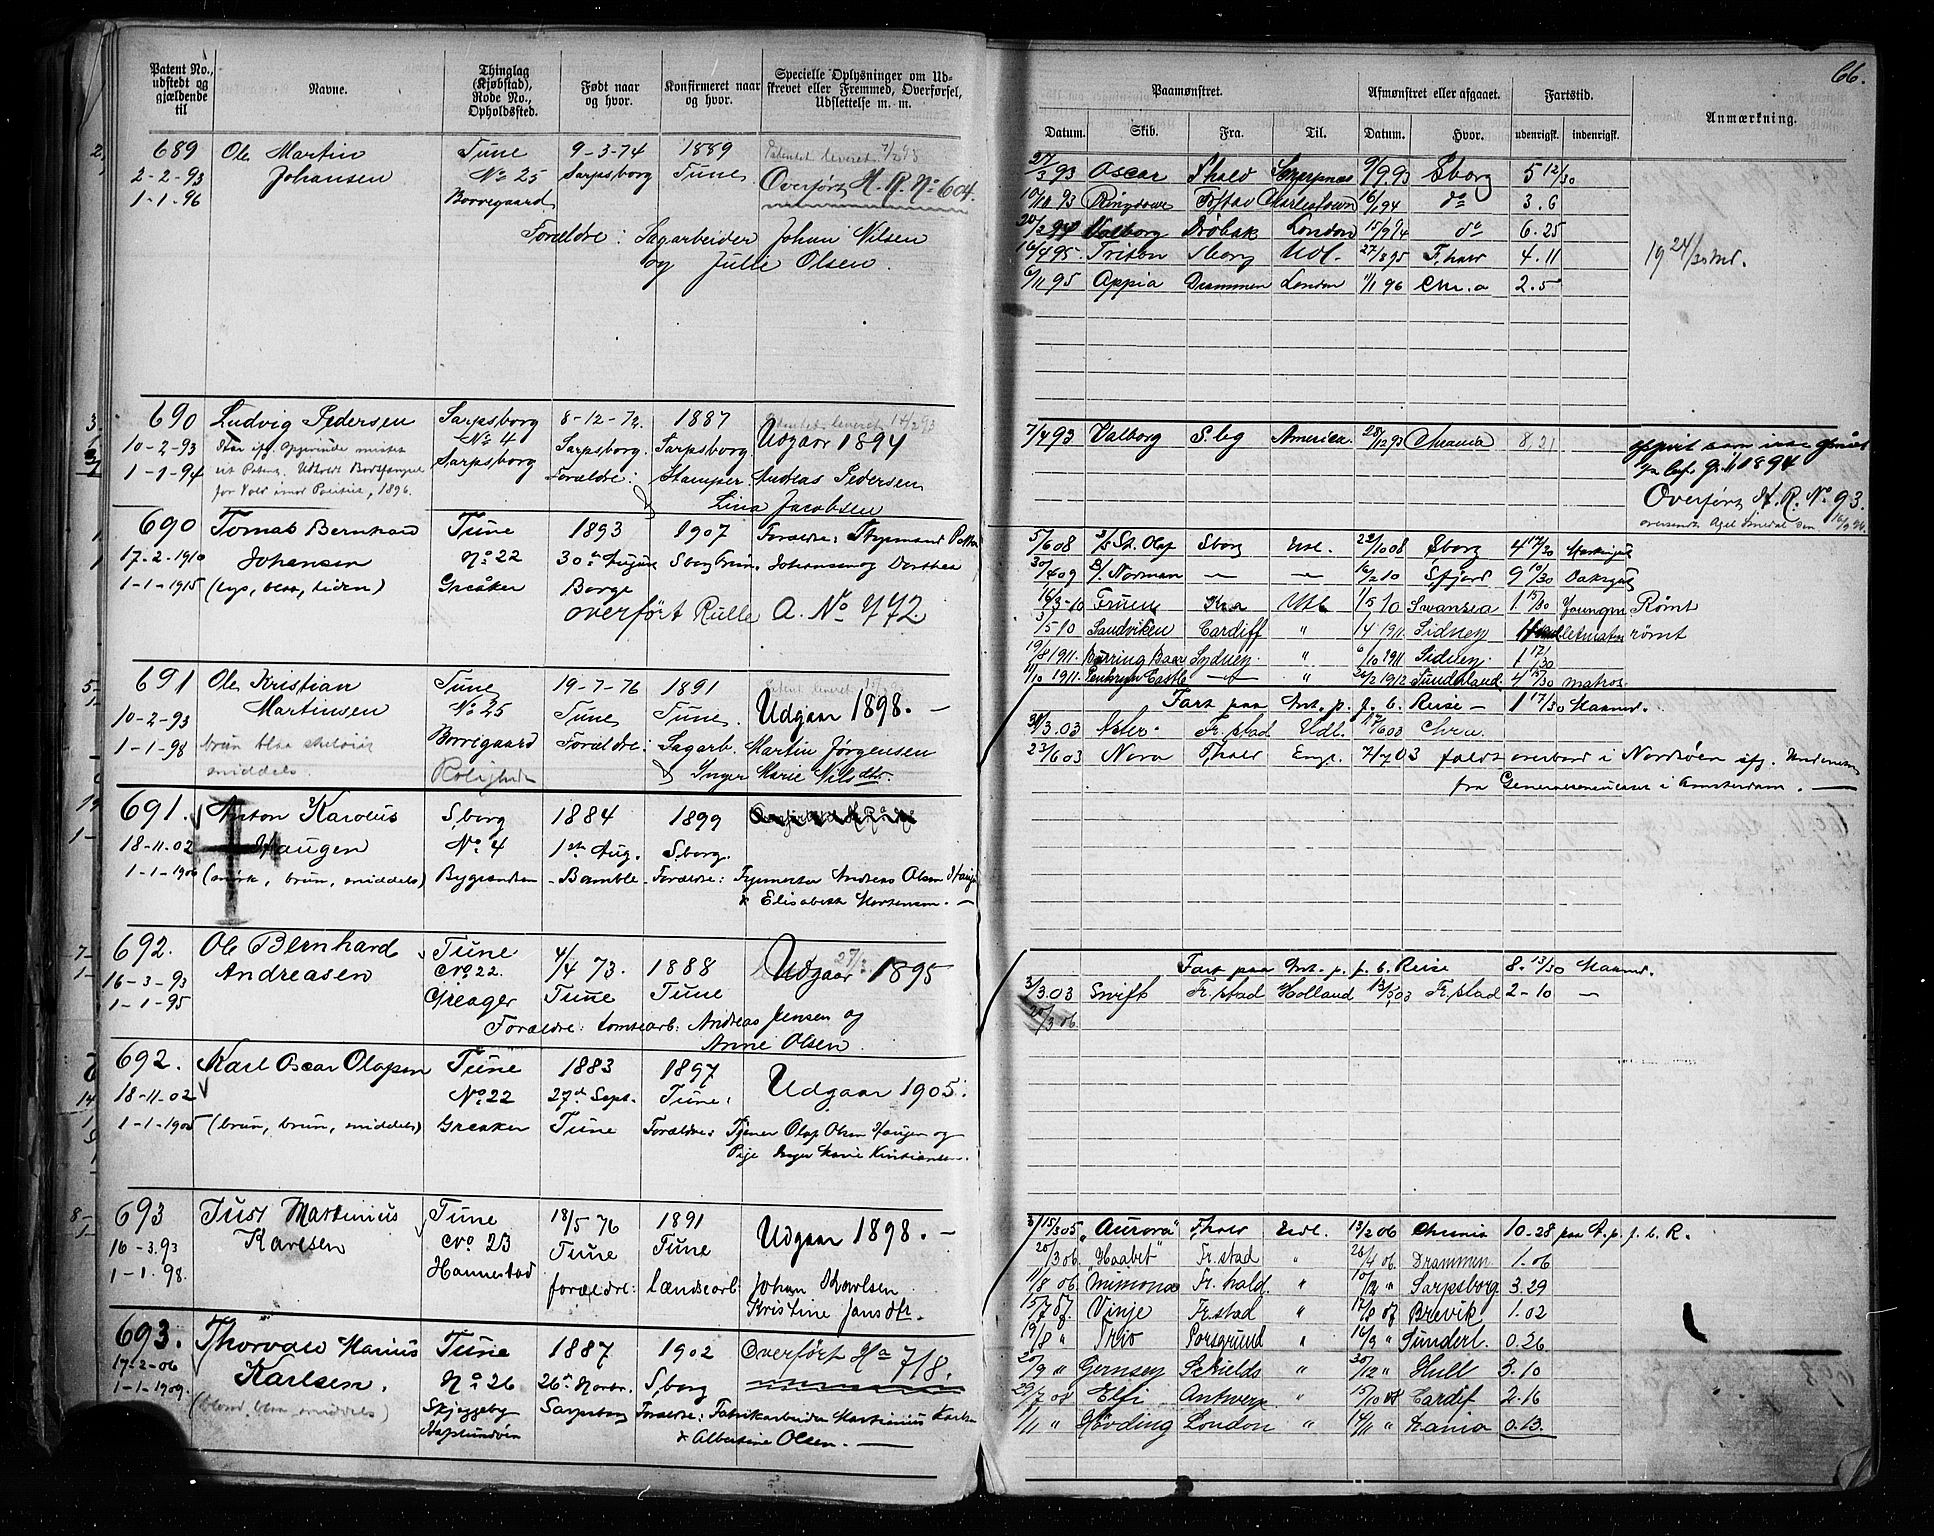 66.
Patent No., udstedt og gjældende til
Navne.
Thinglag (Kjøbstad), Rode No., Opholdssted.
Født naar og hvor.
Konfirmeret naar og hvor.
Specielle Oplysninger om Udskrevet eller Fremmed, Overførsel, Udslettelse m. m.
Paamønstret.
Afmønstret eller afgaaet.
Fartstid.
Anmærkning.
Datum. Skib. Fra. Til. Datum. Hvor. udenrigsk. indenrigsk.
689 Ole Martin Tune 9-3-74 1889 Patentet leveret
2-2-93 Johansen No 25 Sarpsborg Tune Overført H. R. No 604.
1-1-96 Borregaard
Forældre: Sagarbeider Johan Nilsen
og Julie Olsen.
27/3 93 Oscar Fhald 9/9 93 Sborg 5 12/30
93 Ringdove Fstad Charlestown 6/1 94 do 3.6
Valborg Drøbak London 15/9 94 do 6.25
16/4 95. Triton Sborg Udl. 27/8 95 F.hald 4.11
19 24/30 Md.
6/11 95 Appia Drammen London 1/1 96 Chr.a 2.5
690 Ludvig Pedersen Sarpsborg 8-12-72. 1887 Patentet leveret 14/2 93
10-2-93 No 4 Sarpsborg. Sarpsborg Udgaar 1894
1-1-94 Sarpsborg Forældre: Stamper Andreas Pedersen
for Vold imod Politiet, 1896.
Lina Jacobsen
7/4 93 Valborg S.bg America 28/12 93 Chrania 8.21
1894
Overført H. R. No 93.
690 Tomas Bernhard Tune 1893 1907 Forældre:
17-2-1910 Johansen No 22 30te August Sborg Johannsen og Dorthea
1-1-1915 (lys, blaa, liden) Greåker Borge
overført Rulle A. No 772.
5/6 08 St. Olaf Sborg Eng. 22/10 08 Sborg 4 17/30
30/4 09 Norman — — 16/2 10 Sfjord 9 10/30 Daksgut
16/3-10 Fruen Kra Utl 1/5 10 Swansea 1 15/30 Youngm Rømt
3/5 10 Sandviken Cardiff " 1/4 1911 Sidney letmatros rømt
19/8 1911. Sydney " 6/10 1911 Sidney. 1 17/30
11/10 1911. Penhryn Castle — " 26/2 1912 Sunderland. 4 15/30 matros.
691 Ole Kristian Tune 19-7-76 1891 Patent leveret
10-2-93 Martinsen No 25 Tune Tune. Udgaar 1898. —
1-1-98 brun blaa Borregaard Forældre: Sagarb. Martin Jørgensen
middels. Rolighed Inger Marie Nilsdtr.
Fart paa Ant. p. f. b. Reise — 1 17/30 Maaned.
31/3.03 Aster. Fr.stad Udl. 17/6 03 Chra.
23/6 03 Nora Fhald Eng. 7/7 03 faldt overbord i Nordsøen ifg.
fra Generalkonsulatet i Amsterdam. —
691. Anton Karolus S.borg 1884 1899
18-11-02 Haugen No 4 1ste Aug. S.borg.
1-1-1906 (mørk, brun, middels) Bygranden Bamble Forældre: Andreas Olsen Haugen
& Elisabeth Mortensen. —
692. Ole Bernhard Tune 4/4 73. 1888 Udgaar 1895
16-3-93 Andreasen No 22. Tune Tune
1-1-95 Greager
Forældre: tomtearb. Andreas Jensen og
Anne Olsen.
Fart paa Ant. p. f. b. Reise 8. 13/30 Maaned.
3/3.03 Swift Fr.stad Holland 13/5 03 Fr.stad 2-10 —
20/3 06.
692. Karl Oscar Olafsen Tune 1883 1897 Udgaar 1905.
18-11-02 No 22 27de Sept. Tune.
1-1-1905 (brun, brun, middels) Greaker Tune Forældre: Olaf Olsen Haugen og
Pige Inger Marie Kristiansen.
693 Just Martinius Tune 18/5 76 1891 Udgaar 1898. —
16-3.93 Karlsen No 23 Tune Tune
1-1-98. Hannestad forældre: lændsearb Johan Karlsen
Kristine Jansdtr.
15/3 05 "Aurora" Fhald Eudl. 13/2 06 Chrania 10-28 paa A. p. f. b. R.
20/3 06. "Haabet" Fr.stad " 26/4 06. Drammen 1-06
11/8 06 "Mimona Fr.hald. " 10/12 " Sarpsborg 3.29
15/7 07. Vinje Fr.stad " 17/8 07 Brevik 1.02
19/8 " Trio Porsgrund " 16/9 " Sunderl. 0.26
20/9 " Gernsey Schields " 30/12 " Hull 3.10
29/7 08 Elfi Antwerp. " 15/10 08 Cardif 2-16
1/11 " Høvding London " 14/11 " Krania 0.13.
693. Thorvald Marius Tune 1887 1902 Overført Ha 718.
17-2-06 Karlsen. No 26 26de Novbr. S.borg
1-1-1909. (blond, blaa, middels) Skjeggeby Sarpsborg Forældre: Fabrikarbeider Martinius Karlsen
& Albertine Olsen. —